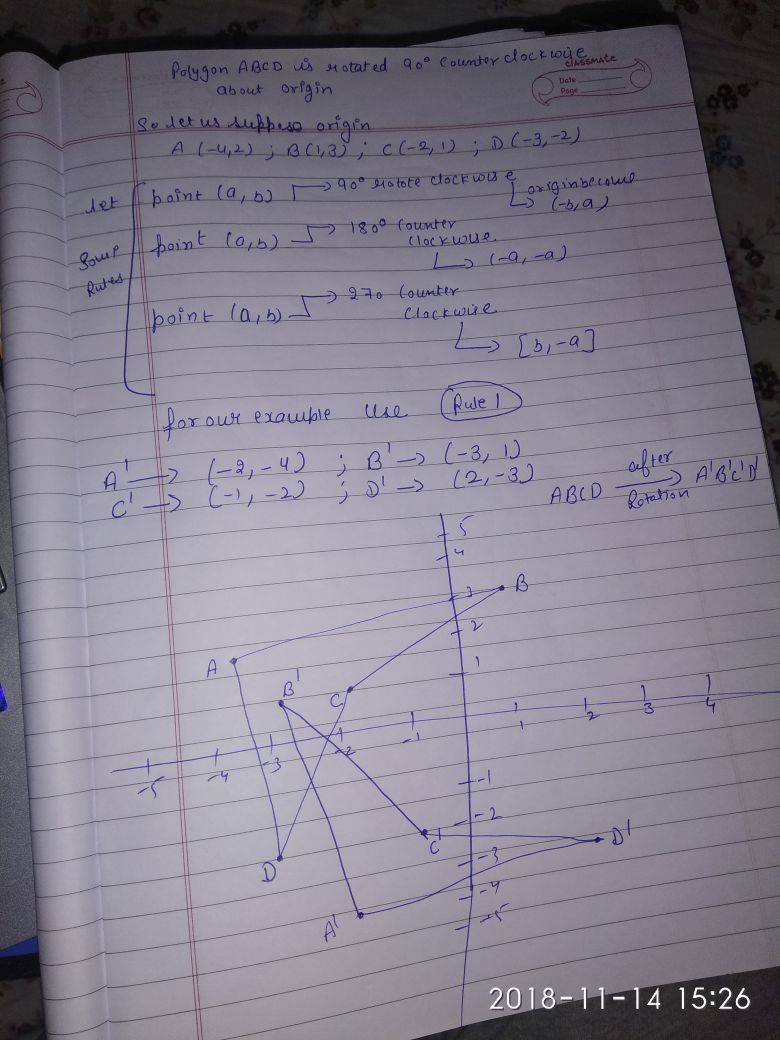 Polygon ABCD is rotated 90° counter clockwise
about origin
CLASSMATE
Date
Page
So let us suppose origin
A (-4,2) ; B(1,3) ; C(-2,1) ; D(-3,-2)
let
some
Rules
point (a, b) → 90° rotate clockwise
origin become
→ (-b,a)
point (a,b) → 180° counter
clockwise
→ (-a, -a)
point (a,b) → 270 counter
clockwise
→ [b, -a]
for our example use Rule 1
A' → (-2, -4) ; B' → (-3, 1)
C' → (-1, -2) ; D' → (2, -3)
ABCD after → Rotation A'B'C'D'
5
4
3 B
2
A
1
B' C
-5 -4 -3 -2 -1 1 2 3 4
-1
-2
C' D'
-3
D
-4
A'
-5
2018-11-14 15:26